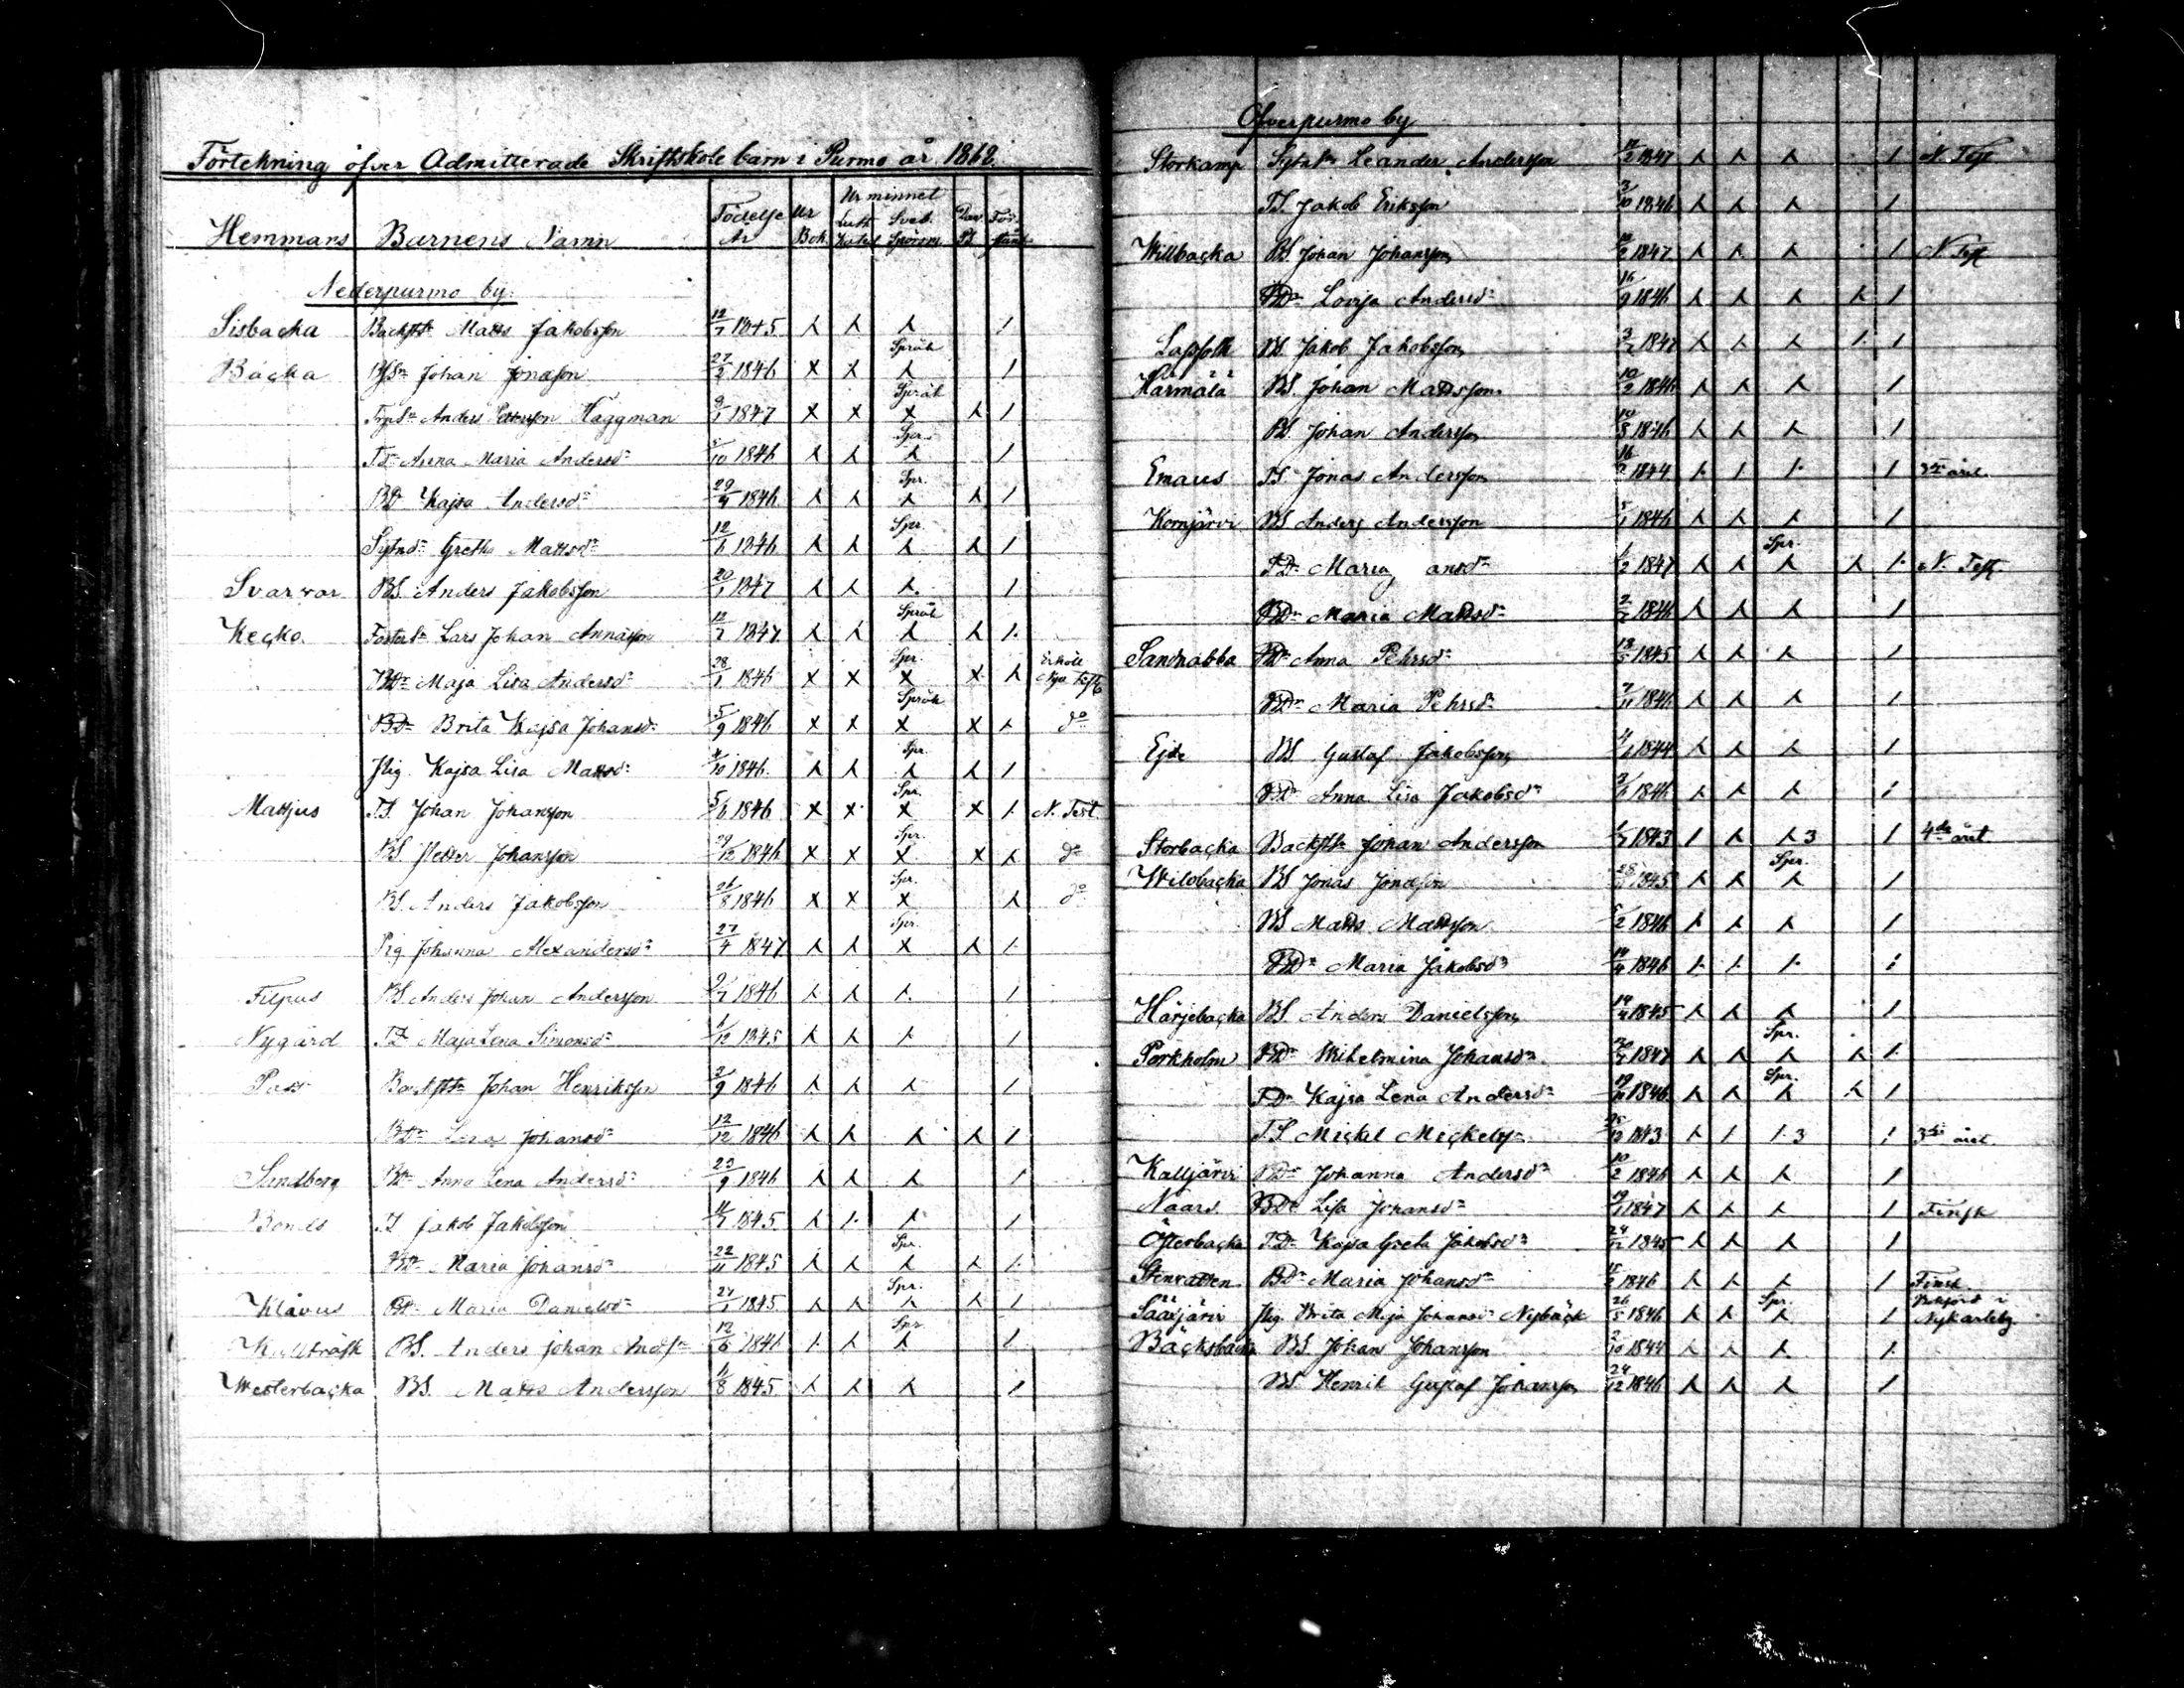 Förtekning öfver Admitterade Skriftskolebarn i Purmo år 1862.
Hemmans Barnens Namn Födelse År Ur Bok Ur minnet Luth. Kates Sveb. Spörsm Dav. Ps Förstånd
Nederpurmo by:
Sisbacka Backstss Matts Jakobsson 12/7 1845
Språk
Backa Johan Jonasson 27/2 1846
Språk
Anders Pettersson Häggman 9/1 1847
Spr.
TDr Anna Maria Andersdr 5/10 1846
Spr.
BDr Kajsa Andersdr 29/9 1846
Spr.
Sytndr Greta Mattsdr 12/6 1846
Svarvar BS. Anders Jakobsson 20/1 1847
Språk
Kecko Fosters Lars Johan Annasson 12/2 1847
Spr. Erhöll
BDr Maja Lisa Andersdr 28/1 1846 Nya Test
Språk
BDr Brita Kajsa Johansdr 5/9 1846 do
Spr.
Pig. Kajsa Lisa Mattsdr 4/10 1846
Spr.
Mattjus TS. Johan Johansson 5/6 1846 N. Test
Spr.
BS Petter Johansson 29/12 1846 do
Spr.
BS. Anders Jakobsson 21/8 1846 do
Spr.
Pig Johanna Alexandersdr 27/4 1847
Filpus BS. Anders Johan Andersson 1846
Nygård TD Maja Lena Simonsdr 1/12 1845
Pass Backstss Johan Henriksson 3/9 1846
BDr Lisa Johansdr 12/12 1846
Sandberg BDr Anna Lena Andersdr 23/9 1846
Bonds TS Jakob Jakobsson 1845
Spr.
BDr Maria Johansdr 22/11 1845
Spr.
Klavus BDr Maria Danielsdr 27/1 1845
Spr.
Kullträsk BS. Anders Johan Andss 12/6 1846
Westerbacka BS. Matts Andersson 11/8 1845
Öfverpurmo by
Storkamp Sytnss Leander Andersson 12/2 1847 N. Test
TS. Jakob Eriksson 3/10 1846
Willbacka BS. Johan Johansson 10/2 1847 N Test
BDr Lovisa Andersdr 16/9 1846
Lapfolk BS. Jakob Jakobsson 3/2 1847
Härmälä BS. Johan Mattsson 10/2 1846
BS. Johan Andersson 10/8 1846
Emaus TS Jonas Andersson 16/2 1844 3die året.
Kornjärvi BS Anders Andersson 5/1 1846
Spr.
TDr Maria ansdr 6/2 1847 N. Test.
BDr Maria Mattsdr 2/2 1846
Sandnabba BDr Anna Pehrsdr 13/5 1845
BDr Maria Pehrsdr 7/11 1846
Ejde BS Gustaf Jakobsson 4/6 1844
BDr Anna Lisa Jakobsdr 3/6 1846
Storbacka Backstss Johan Andersson 1/7 1843 3 4de året.
Spr.
Wilobacka BS Jonas Jonasson 1845
BS Matts Mattsson 5/2 1846
BDr Maria Jakobsdr 14/4 1846
Härjebacka BS. Anders Danielsson 14/4 1845
Spr.
Porkholm BDr Wilhelmina Johansdr 1847
Spr.
TDr Kajsa Lena Andersdr 1846
TS Mickel Mickelss 1843 3 3die året
Kalljärvi BDr Johanna Andersdr 10/2 1846
Naars BDr Lisa Johansdr 19/1 1847 Finsk
Österbacka TDr Kajsa Greta Jakobsdr 24/12 1845
Stenvatten BDr Maria Johansdr 1846 Finsk
Spr. i
Sääxjärvi Pig. Brita Maja Johansdr Nybäck 26/5 1846 Nykarleby
Bäcksbacka BS. Johan Johansson 2/10 1844
BS. Henrik Gustaf Johansson 24/12 1846